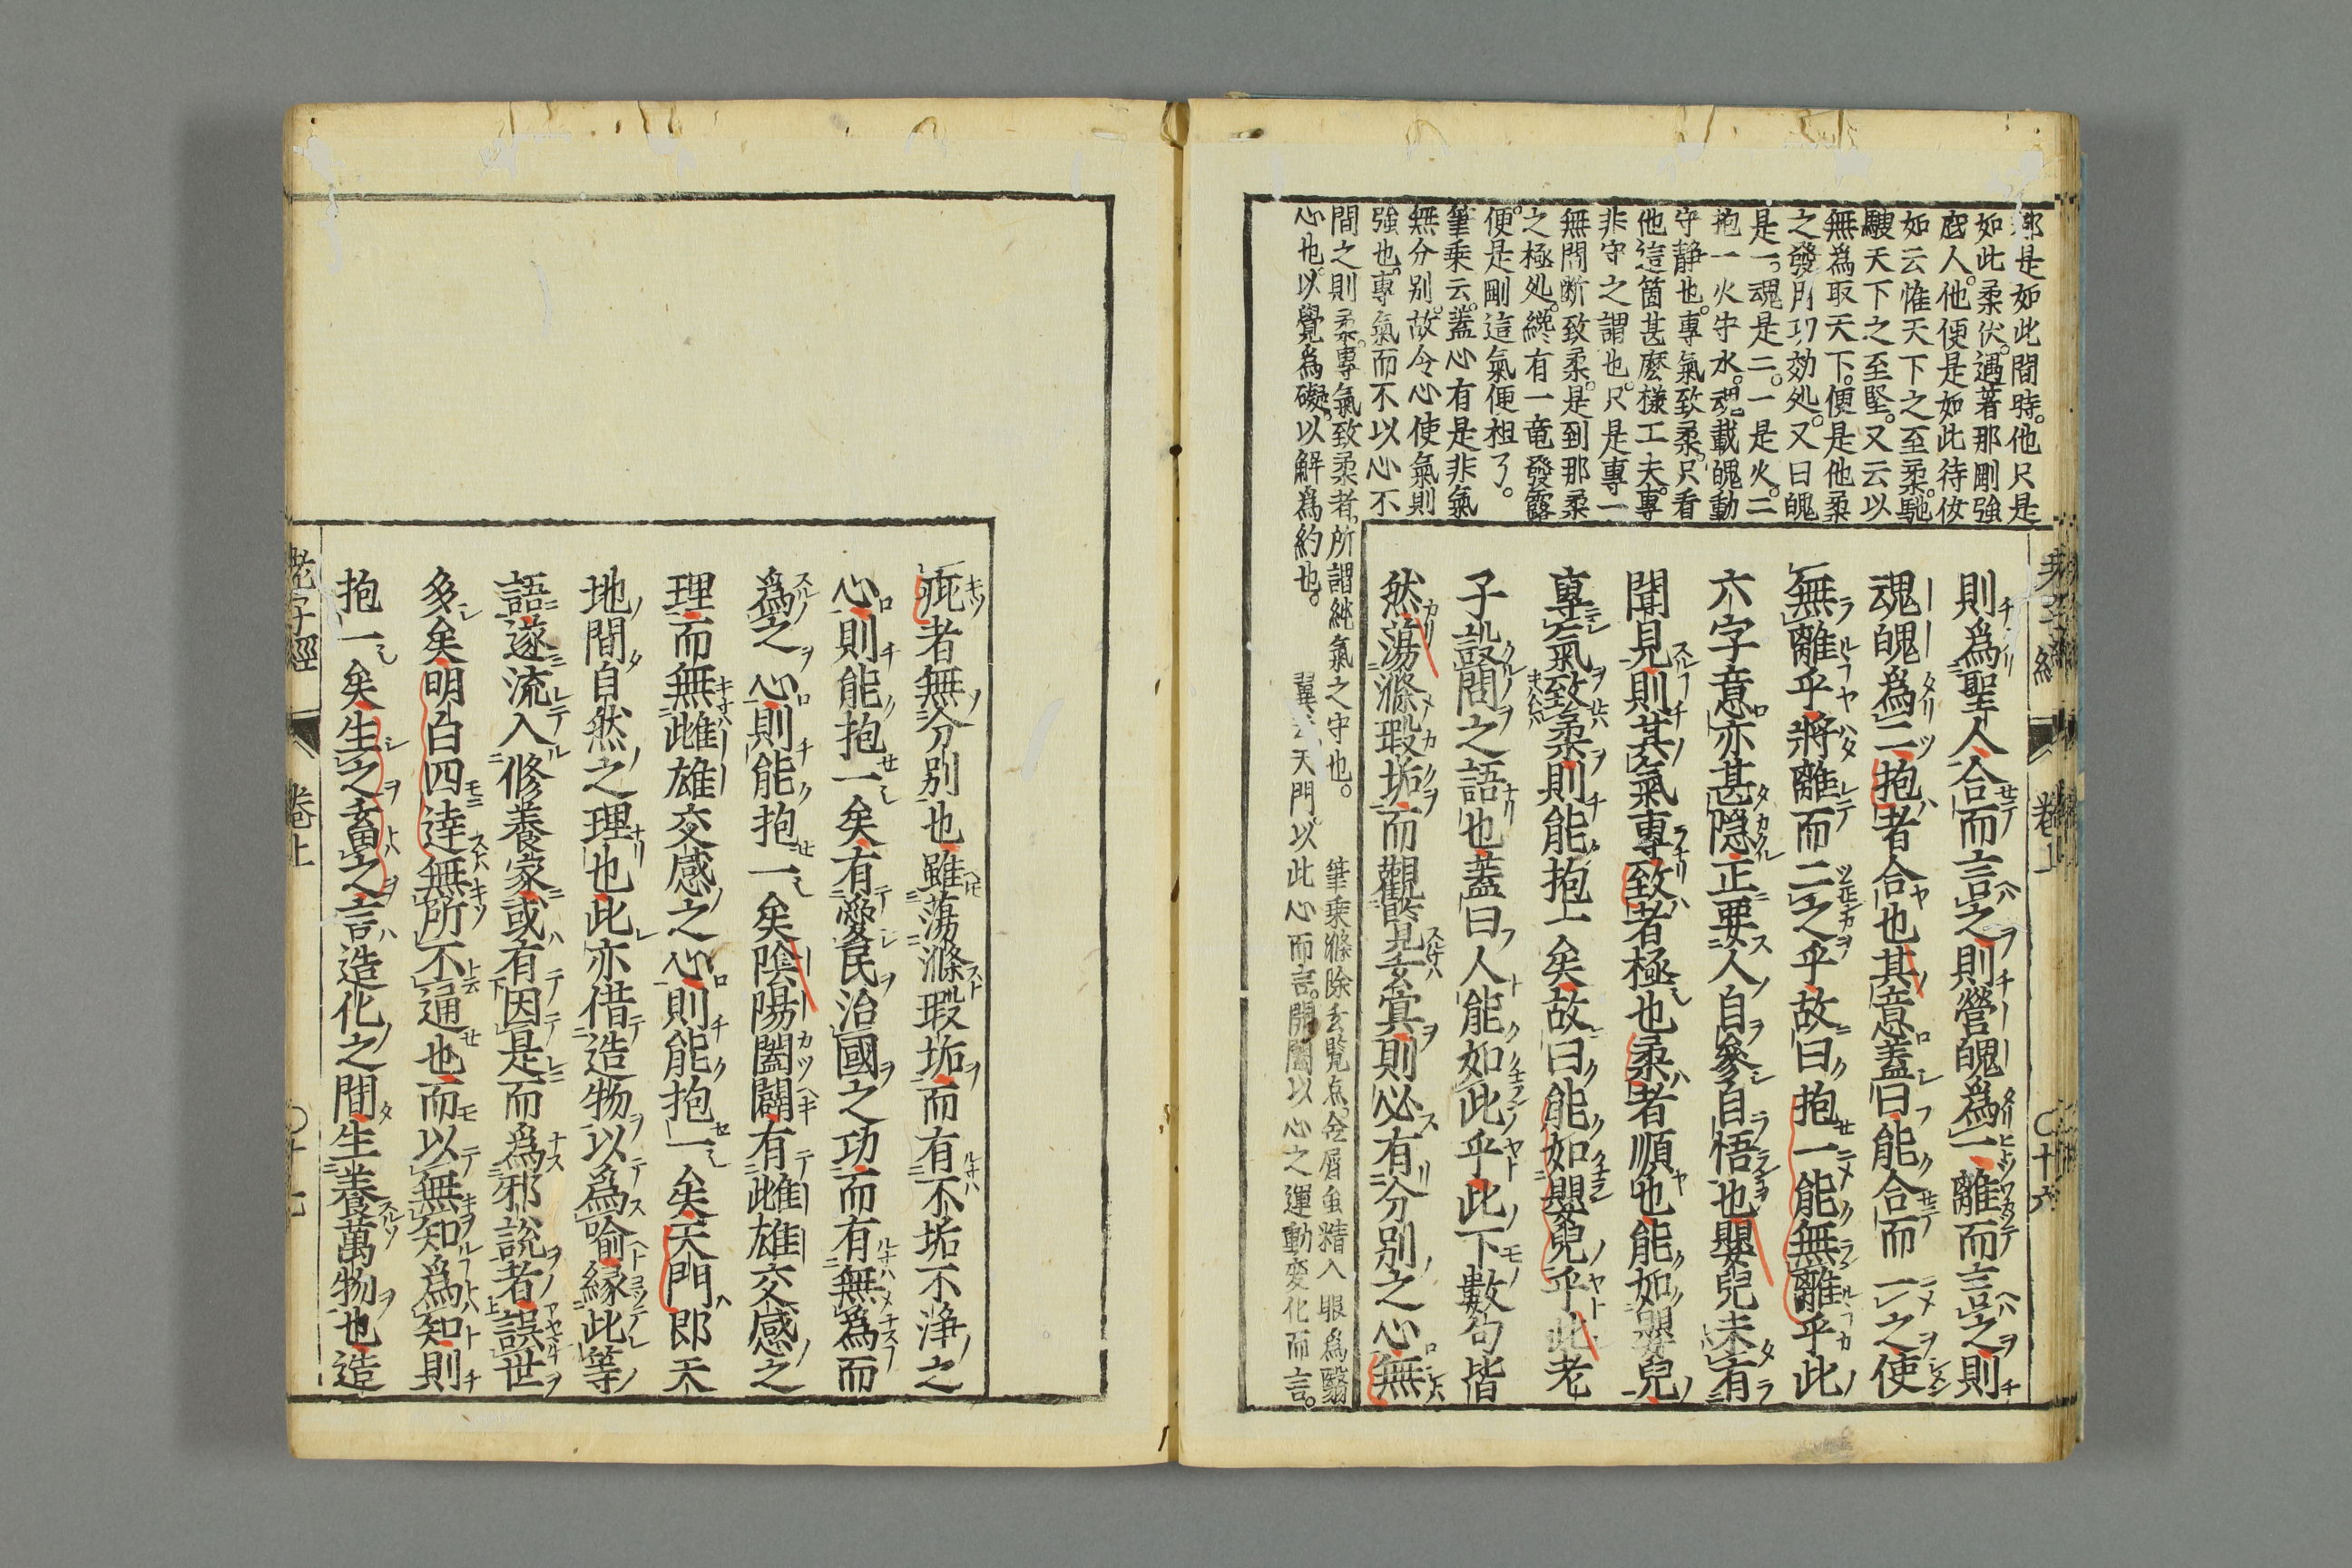 是如此間時。他只是
如此柔伏。遇著那剛強
底人。他便是如此待你
如云惟天下之至柔。馳
騁天下之至堅。又云以
無爲取天下。便是他柔
之發用功効処。又曰魄
是一。魂是二。一是火。二
抱一火守水。魂載魄動
守静也。專氣致柔。只看
他這箇甚麼樣工夫。專
非守之謂也。只是專一
無間断致柔。是到那柔
之極処。纔有一毫發露
便是剛這氣便粗了。
筆乗云。蓋心有是非氣
無分別。故令心使氣則
強也。專氣而不以心不
間之則柔。專氣致柔者。所謂純氣之守也。
筆乗滌除玄覧点金屑虽精入眼爲翳
心也。以覺爲礙。以解爲約也。
翼云天門。以此心而言。開闔以心之運動変化而言。
則爲聖人合而言之則營魄爲一離而言之則
魂魄爲二抱者合也其意蓋曰能合而一之使
無離乎將離而二之乎故曰抱一能無離乎此
六字意亦甚隠正要人自參自悟也嬰兒未有
聞見則其氣專致者極也柔者順也能如嬰兒
專氣致柔則能抱一矣故曰能如嬰兒乎此老
子設問之語也蓋曰人能如此乎此下數句皆
然蕩滌瑕垢而觀玄冥則必有分別之心無
老子經 卷上 〇十六
疵者無分別也雖蕩滌瑕垢而有不垢不浄之
心則能抱一矣有愛民治國之功而有無爲而
爲之心則能抱一矣陰陽闔闢有雌雄交感之
理而無雌雄交感之心則能抱一矣天門郎天
地間自然之理也此亦借造物以爲喩緣此等
語遂流入修養家或有因是而爲邪説者誤世
多矣明白四達無所不通也而以無知爲知則
抱一矣生之畜之言造化之間生養萬物也造
老子經 卷上 〇十七